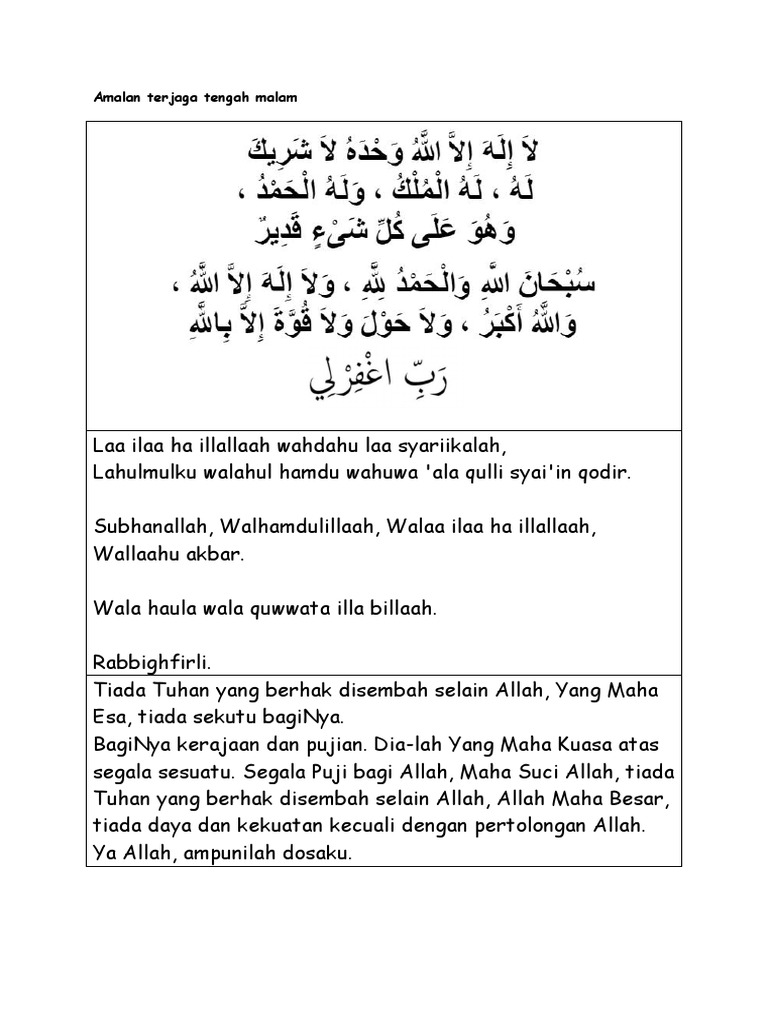 Amalan terjaga tengah malam
لاَ إِلَهَ إِلاَّ اللَّهُ وَحْدَهُ لاَ شَرِيكَ
لَهُ ، لَهُ الْمُلْكُ ، وَلَهُ الْحَمْدُ ،
وَهُوَ عَلَى كُلِّ شَىْءٍ قَدِيرٌ
سُبْحَانَ اللَّهِ وَالْحَمْدُ لِلَّهِ ، وَلاَ إِلَهَ إِلاَّ اللَّهُ ،
وَاللَّهُ أَكْبَرُ ، وَلاَ حَوْلَ وَلاَ قُوَّةَ إِلاَّ بِاللَّهِ
رَبِّ اغْفِرْ لِي
Laa ilaa ha illallaah wahdahu laa syariikalah,
Lahulmulku walahul hamdu wahuwa 'ala qulli syai'in qodir.
Subhanallah, Walhamdulillaah, Walaa ilaa ha illallaah,
Wallaahu akbar.
Wala haula wala quwwata illa billaah.
Rabbighfirli.
Tiada Tuhan yang berhak disembah selain Allah, Yang Maha
Esa, tiada sekutu bagiNya.
BagiNya kerajaan dan pujian. Dia-lah Yang Maha Kuasa atas
segala sesuatu. Segala Puji bagi Allah, Maha Suci Allah, tiada
Tuhan yang berhak disembah selain Allah, Allah Maha Besar,
tiada daya dan kekuatan kecuali dengan pertolongan Allah.
Ya Allah, ampunilah dosaku.